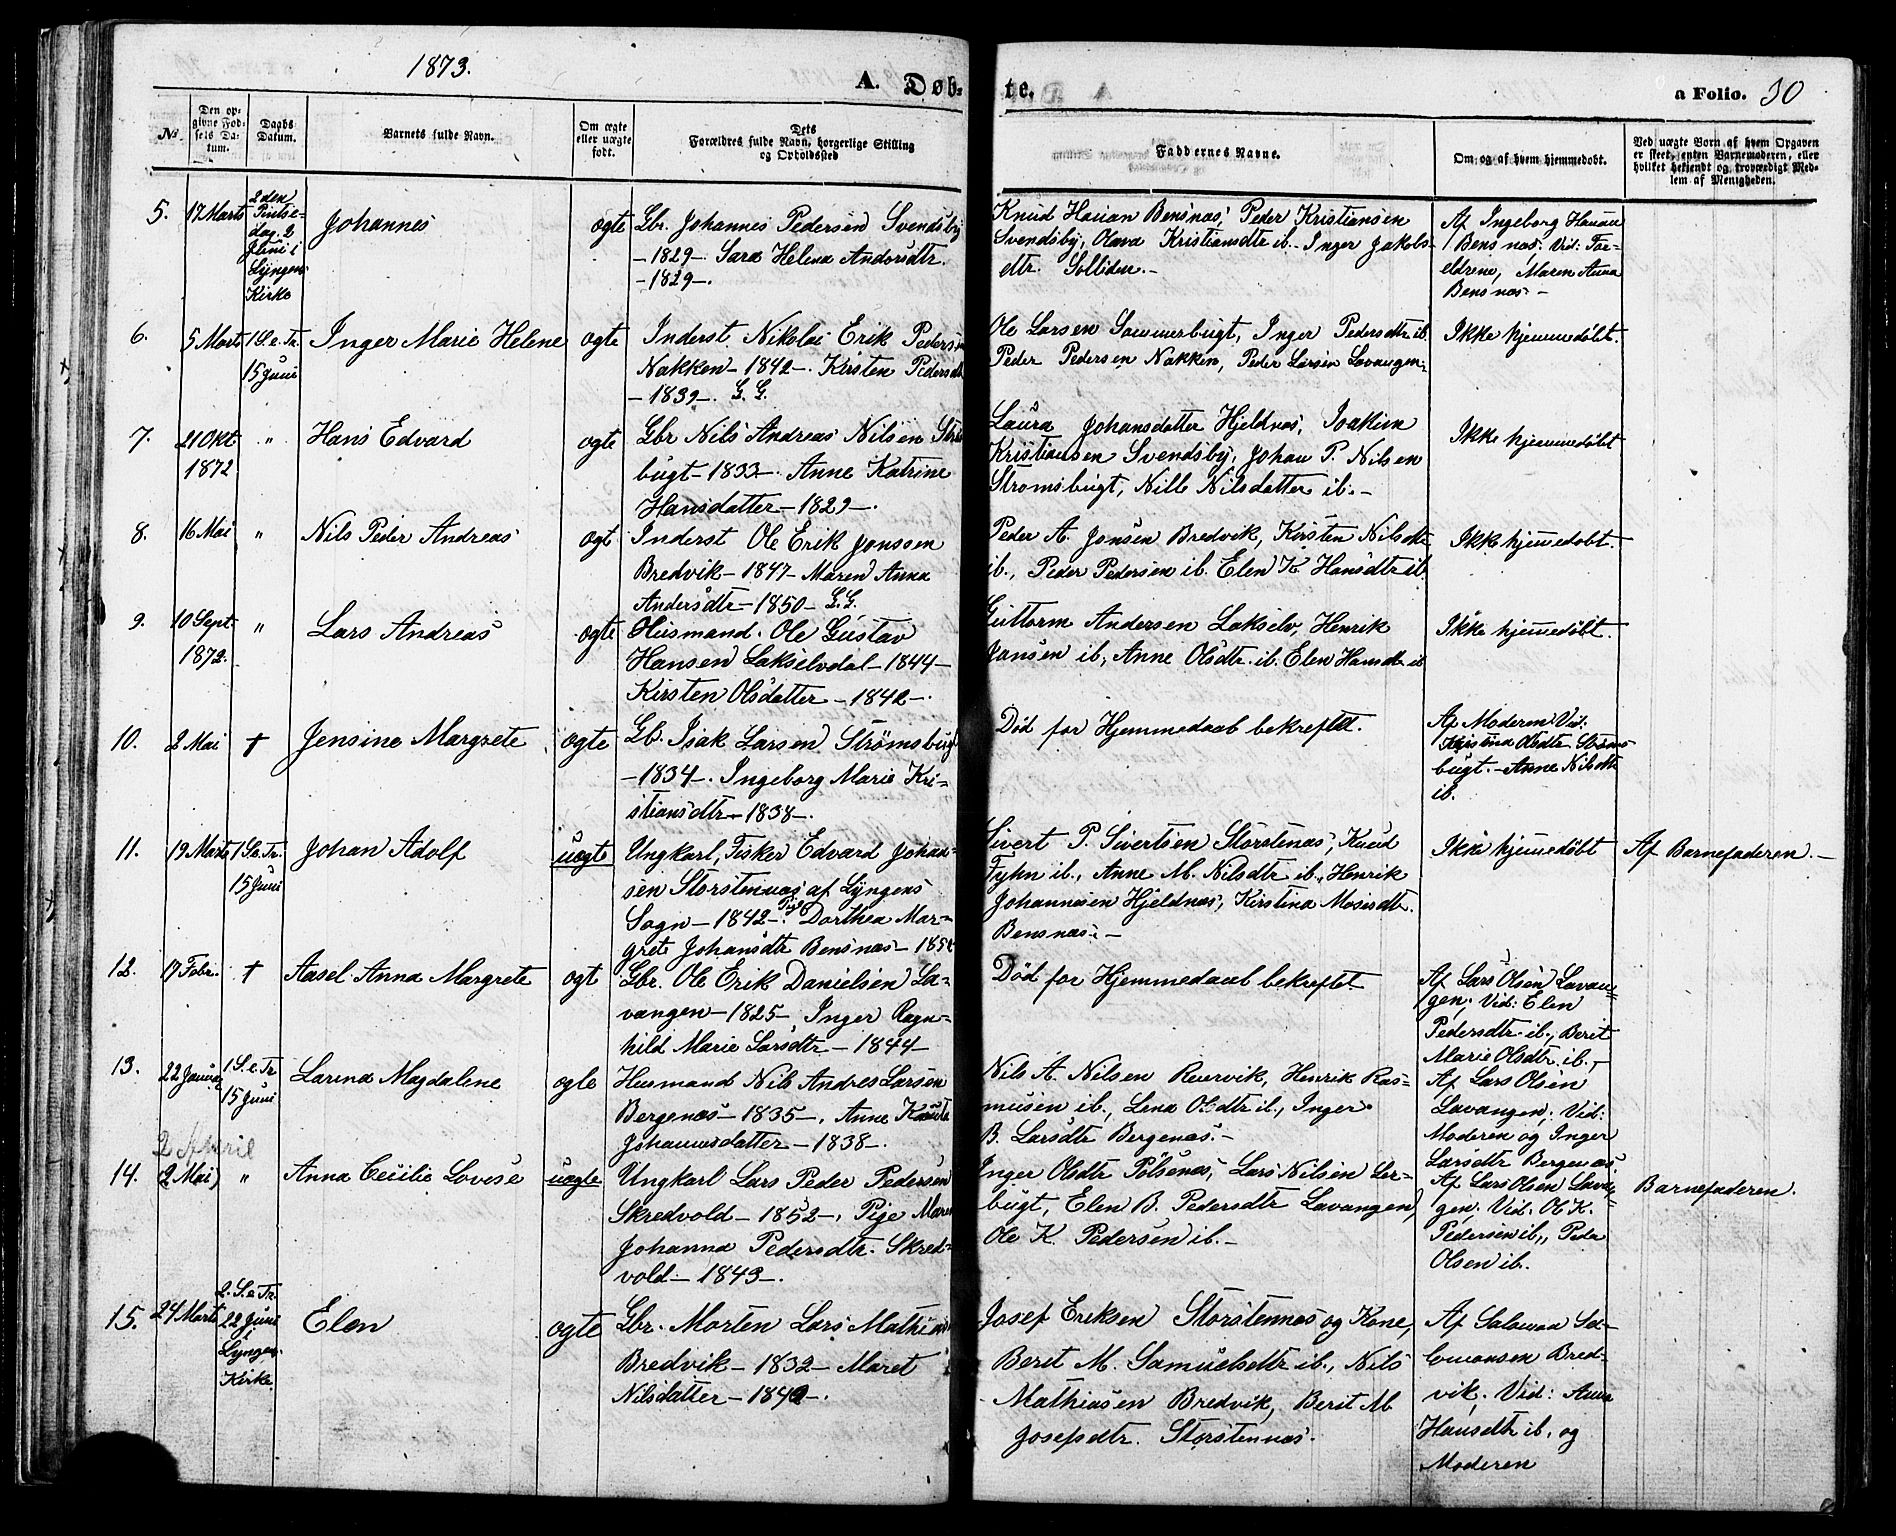 1873.
A. Døb-
te.
a Folio. 30
No.
Den op-
givne Fød-
sels Da-
tum.
Daabs
Datum.
Barnets fulde Navn.
Om ægte
eller uægte
født.
Dets
Forældres fulde Navn, borgerlige Stilling
og Opholdssted
Faddernes Navne.
Om og af hvem hjemmedøbt.
Ved uægte Børn af hvem Opgaven
er skeet, enten Barnemoderen, eller
hvilket bekjendt og troværdigt Med-
lem af Menigheden.
5.
17 Marts
2den
Pintse-
dag. 2
Juni i
Lyngens
Kirke
Johannes
ægte
Gbr. Johannes Pedersen Svendsby
-1829- Sara Helena Andorsdtr.
-1829-.
Knud Hansen Bensnæs, Peder Kristiansen
Svendsby, Olava Kristiansdtr ib. Inger Jakobs-
dtr. Solliden.-
Af Ingeborg Hansen
Bensnæs. Vid: For-
ældrene, Maren Anna
Bensnæs.-
6.
5 Marts
1 S. e. Tr.
15 Juni
Inger Marie Helene
ægte
Inderst Nikolai Erik Pedersen
Nakken-1842-. Kirsten Pedersdtr
-1839-. G. G.
Ole Larsen Sommerbugt, Inger Pedersdtr ib.
Peder Pedersen Nakken, Peder Larsen Lavangen.
Ikke hjemmedøbt.
7.
21 Okt
1872
"
Hans Edvard
ægte
Gbr Nils Andreas Nilsen Strøms
bugt-1833-. Anne Katrine
Hansdatter-1829-.
Laura Johansdatter Hjeldnæs, Joakim
Kristiansen Svendsby, Johan P. Nilsen
Strømsbugt, Nille Nilsdatter ib.-
Ikke hjemmedøbt
8.
16 Mai
"
Nils Peder Andreas
ægt
Inderst Ole Erik Jonsson
Bredvik-1847- Maren Anna
Andersdtr-1850- G.G.
Peder A. Jonsen Bredvik, Kirsten Nilsdtr
ib., Peder Pedersen ib. Elen K. Hansdtr ib.
Ikke hjemmedøbt.
9.
10 Sept.
1872.
"
Lars Andreas
ægte
Husmand. Ole Gustav
Hansen Lakselvdal-1844-
Kirsten Olsdatter-1842-.
Guttorm Andersen Lakselv, Henrik
Jansen ib, Anne Olsdtr. ib. Elen Hansdtr ib
Ikke hjemmedøbt.
10.
2 Mai
†
Jensine Margrete
ægte
Gb. Isak Larsen Strømsbugt
-1834-. Ingeborg Marie Kri-
stiansdtr-1838-.
Død før Hjemmedaab bekreftet.
Af Moderen. Vid:
Kirstina Olsdtr Strøms-
bugt.- Anne Nilsdtr
ib.
11.
19 Marts
1 S. e. Tr.
15 Juni
Johan Adolf
uægte
Ungkarl, Fisker Edvard Johan-
sen Storstennæs af Lyngens
Sogn-1842-. Pige Dorthea Mar-
grete Johansdtr Bensnæs-185
Sivert P. Sivertsen Storstennæs, Knud
Fyhn ib., Anne M. Nilsdtr ib., Henrik
Johannesen Hjeldnæs, Kirstina Mosisdtr.
Bensnæs.-
Ikke hjemmedøbt
Af Barnefaderen.-
12.
17 Febr.
†
Aasel Anna Margrete
ægt
Gbr. Ole Erik Danielsen La-
vangen-1825- Inger Ragn-
hild Marie Larsdtr-1844-
Død før Hjemmedaab bekreftet.
Af Lars Olsen Lavan-
gen. Vid: Elen
Pedersdtr ib., Berit
Marie Olsdtr ib.-
13.
22 Januar
1 S. e. Tr
15 Juni
Larina Magdalene
ægte
Husmand Nils Andres Larsen
Bergenæs-1835-. Anne Kaisa
Johannesdatter-1838-.
Nils A. Nilsen Reiervik, Henrik Ras-
musen ib., Lena Olsdtr ib., Inger
B. Larsdtr Bergenæs.-
Af Lars Olsen
Lavangen; Vid:
Moderen og Inger
Larsdtr Bergenæs.
14.
2 April
(2 Mai)
"
Anna Cecilie Lovise
uægte
Ungkarl Lars Peder Pedersen
Skredvold-1852-, Pige Maren
Johanna Pedersdtr. Skred-
vold-1843-.
Inger Olsdtr Pølsenæs, Lars Nilsen Ler-
bugt, Elen B. Pedersdtr Lavangen,
Ole K. Pedersen ib.-
Af Lars Olsen Lavan-
gen. Vid. Ol K.
Pedersen ib., Peder
Olsen ib.
Barnefaderen.
15.
24 Marts
2. S. e. Tr.
22 Juni
i
Lyngens
Kirke
Elen
ægte
Gbr. Morten Lars Mathisen
Bredvik-1832- Maret
Nilsdatter-1840-.
Josef Eriksen Storstennæs og Kone,
Berit M. Samuelsdtr ib., Nils
Mathiasen Bredvik, Berit M
Josefsdtr. Storstennæs.
Af Salomon Sa-
lomonsen Bred-
vik. Vid: Anna
Hansdtr ib. og
Moderen